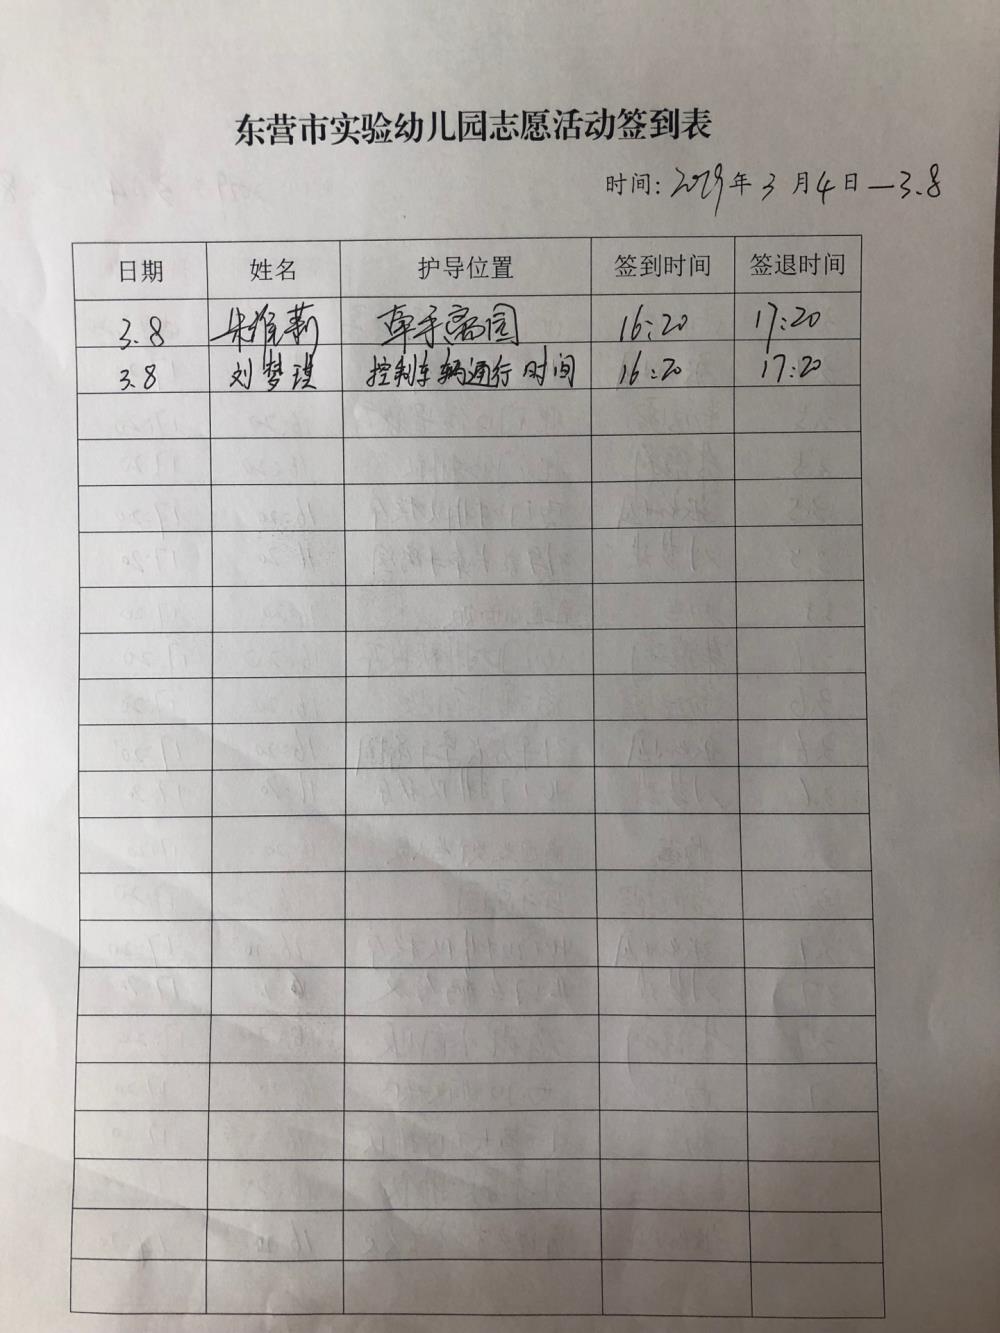 东营市实验幼儿园志愿活动签到表
时间：2019年3月4日—3.8
日期 姓名 护导位置 签到时间 签退时间
3.8 朱维莉 牵手离园 16:20 17:20
3.8 刘梦琪 控制车辆通行时间 16:20 17:20